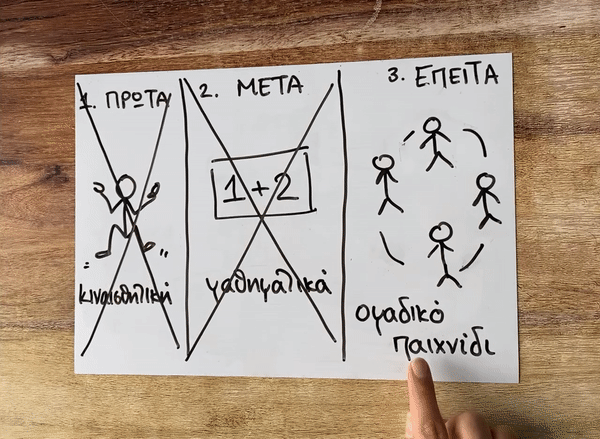 1. ΠΡΩΤΑ
κιναισθητική
2. ΜΕΤΑ
1+2
μαθηματικά
3. ΕΠΕΙΤΑ
ομαδικό
παιχνίδι